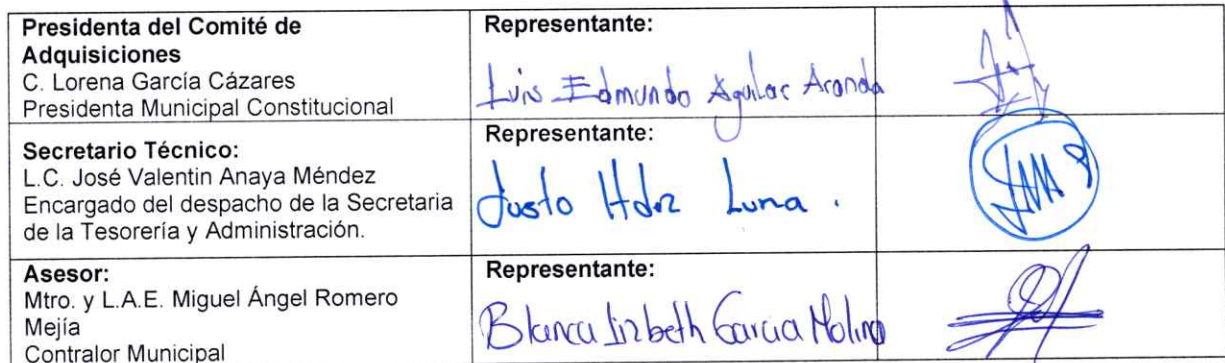 Presidenta del Comité de
Adquisiciones
C. Lorena García Cázares
Presidenta Municipal Constitucional
Representante:
Luis Edmundo Aguilar Aranda
Secretario Técnico:
L.C. José Valentin Anaya Méndez
Encargado del despacho de la Secretaria
de la Tesorería y Administración.
Representante:
Justo Hdez Luna.
Asesor:
Mtro. y L.A.E. Miguel Ángel Romero
Mejía
Contralor Municipal
Representante:
Blanca Lizbeth Garcia Molina